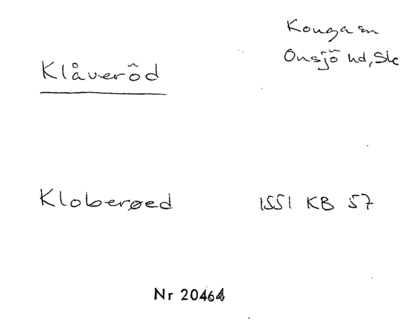 Konga sn
Onsjö hd, Sk
Klåveröd
Kloberøed 1551 KB 57
Nr 20464